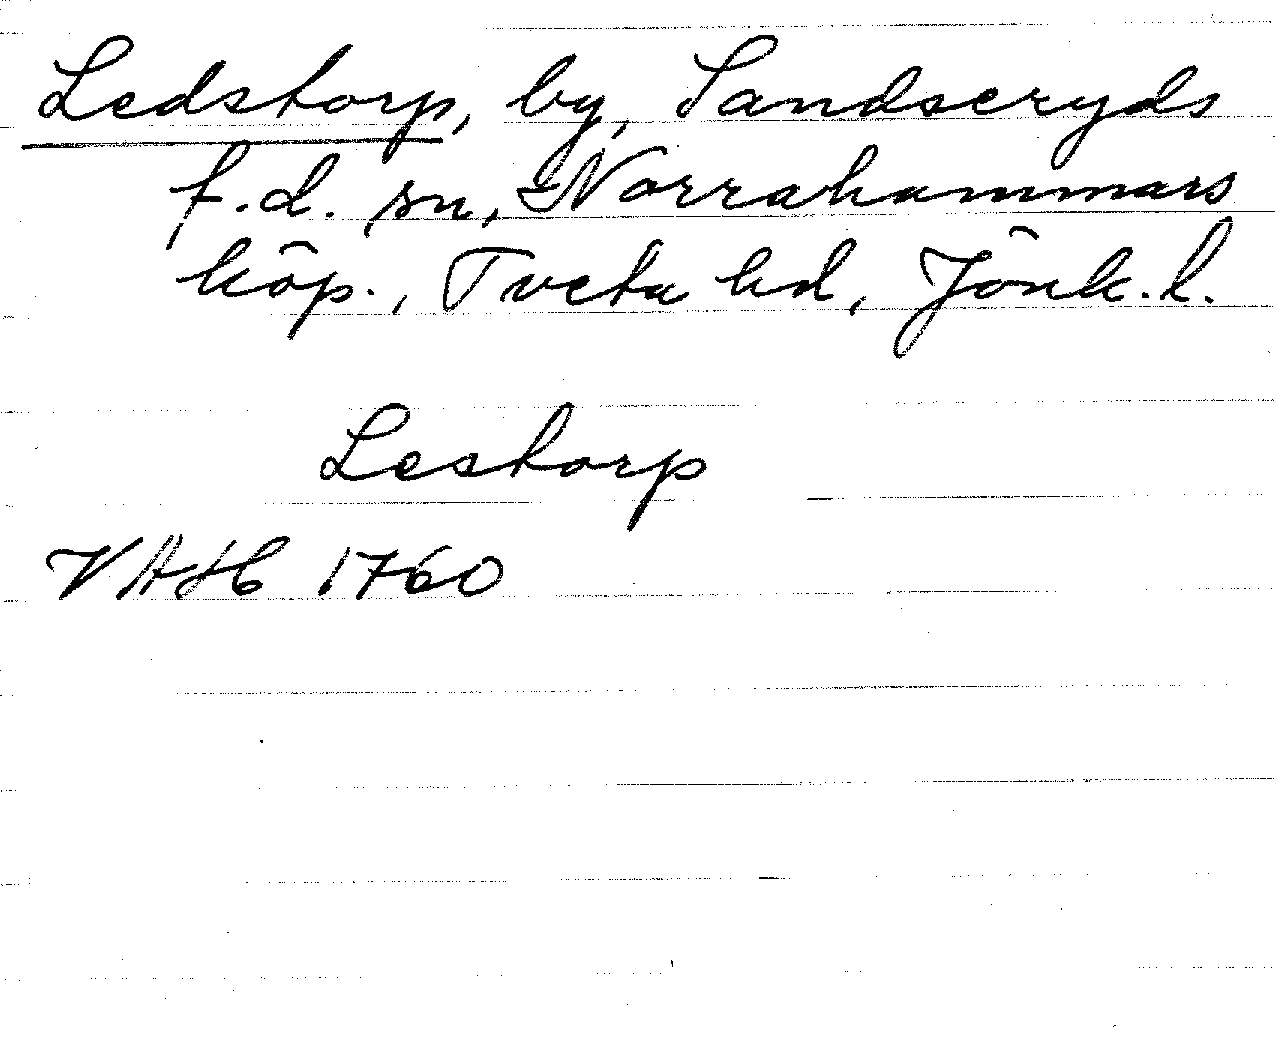 Ledstorp, by, Sandseryds
f.d. sn, Norrahammars
köp., Tveta hd, Jönk. l.
Lestorp
VAH 1760